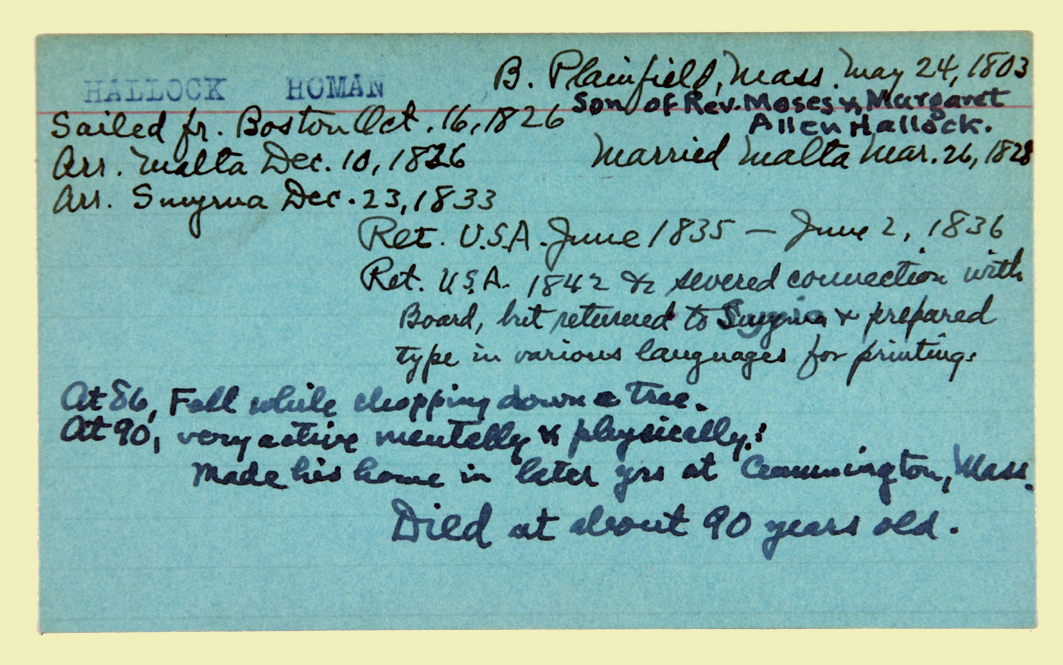 HALLOCK HOMAN
B. Plainfield, Mass. May 24, 1803
Son of Rev. Moses & Margaret
Allen Hallock.
Sailed fr. Boston Oct. 16, 1826
Arr. Malta Dec. 10, 1826
Married Malta Mar. 26, 1828
Arr. Smyrna Dec. 23, 1833
Ret. U.S.A. June 1835 — June 2, 1836
Ret. U.S.A. 1842 & severed connection with
Board, but returned to Smyrna & prepared
type in various languages for printing.
At 86, Fell while chopping down a tree.
At 90, very active mentally & physically.!
Made his home in later yrs at Cummington, Mass.
Died at about 90 years old.